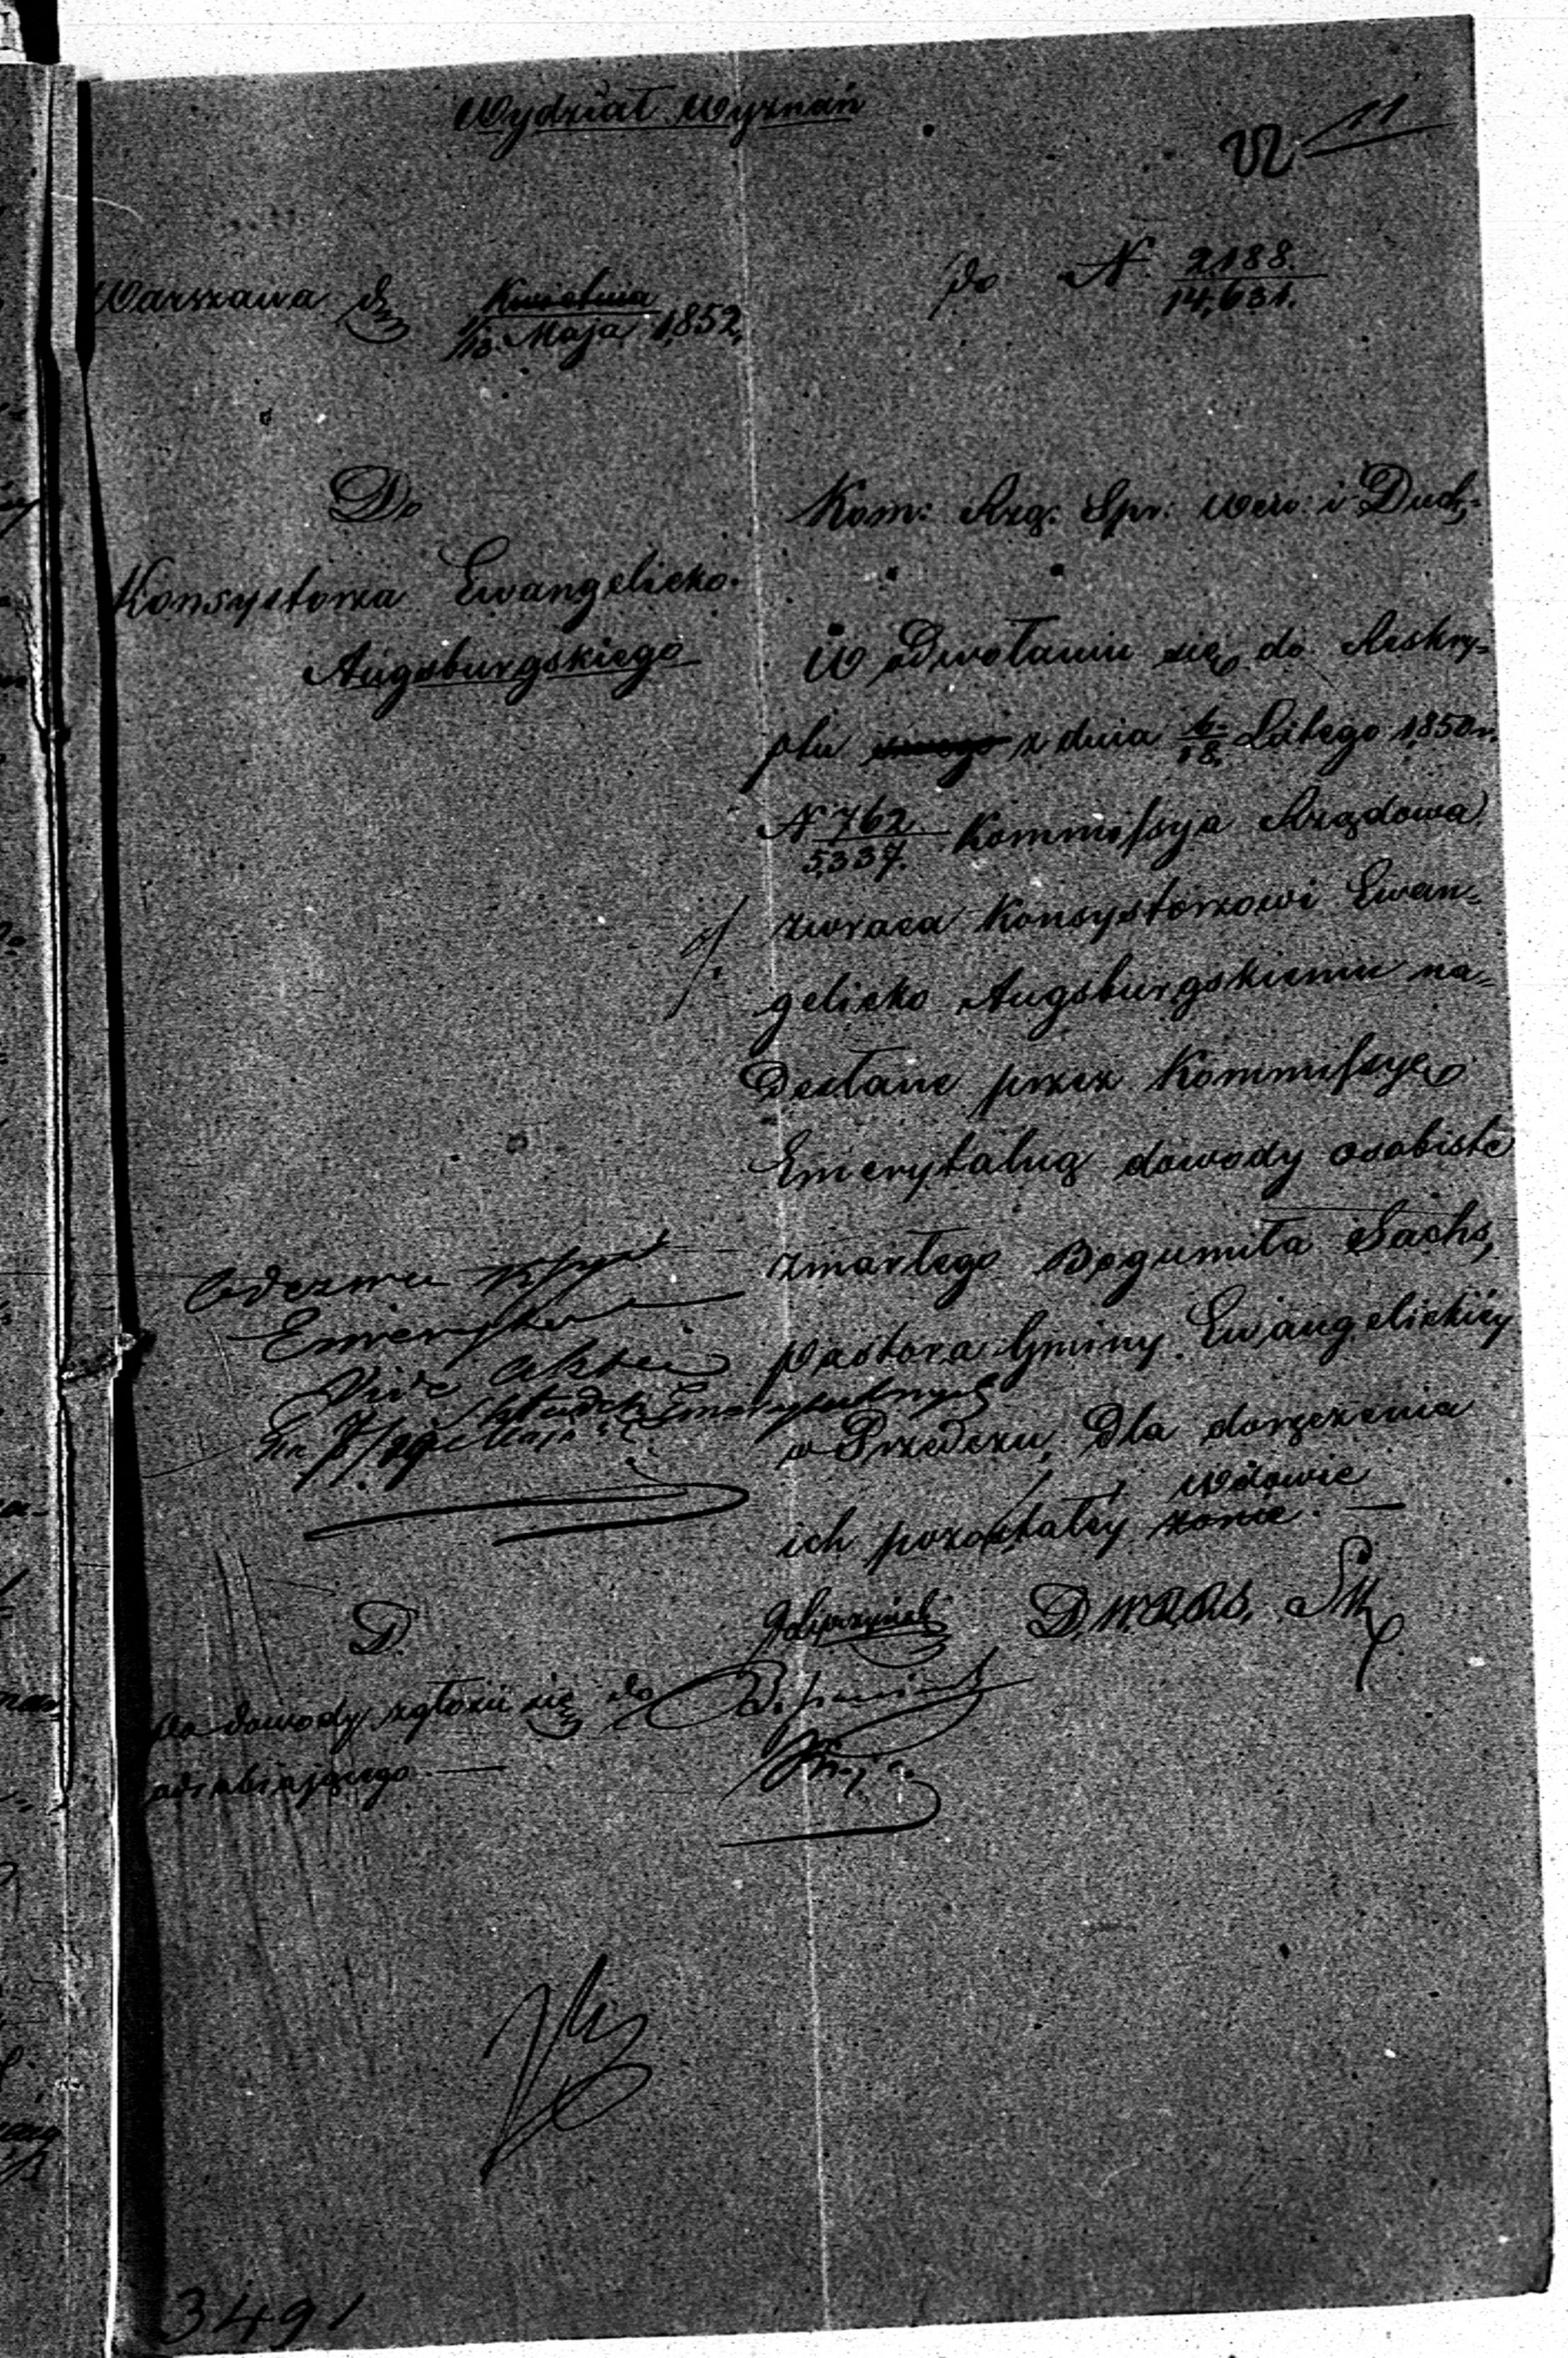 Wydział Wyznań
11
Warszawa d.
Kwietnia
1/13. Maja 1852.
do N. 2188.
14,631.
Do
Konsystorza Ewangelicko-
Augsburgskiego
Kom: Rzą: Spr: Wew: i Duch:
W odwołaniu się do Reskry-
ptu z dnia 6/18. Lutego 1850 r.
N 762/5337. Kommissya Rządowa
zwraca Konsystorzowi Ewan-
gelicko Augsburgskiemu na-
desłane przez Kommissyę
Emerytalną dowody osobiste
zmarłego Bogumiła Sachs,
Pastora Gminy Ewangelickiéy
w Przedczu, dla doręczenia
wdowie
ich pozostałéy żonie. —
Odezwa
Vide akta
Składek Emerytalnych
D.
Po dowody zgłosić się do
odrabiającego —
3491